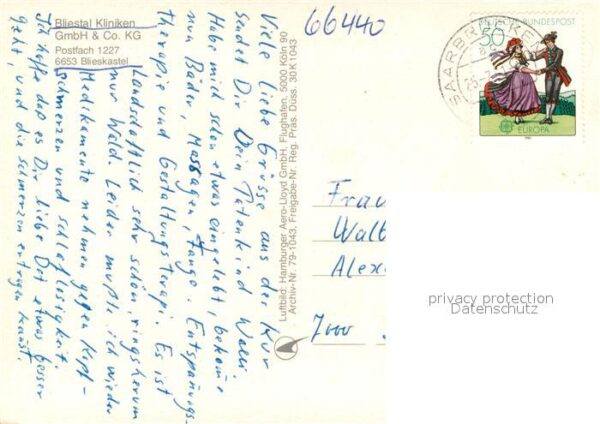 Bliestal Kliniken
GmbH & Co. KG
Postfach 1227
6653 Blieskastel
66440
Viele liebe Grüsse aus der Kur
sendet Dir Dein Patenkind Walli.
Habe mich schon etwas eingelebt, bekomme
nun Bäder, Massagen, Fango. Entspannungs-
therapie und Gestaltungsterapi. Es ist
Landschaftlich sehr schön, ringsherum
nur Wald. Leider mußte ich wieder
Medikamente nehmen gegen Kopf-
schmerzen und schlaflosigkeit.
Ich hoffe daß es Dir liebe Dot etwas besser
geht, und die schmerzen ertragen kannst.
Luftbild: Hamburger Aero-Lloyd GmbH, Flughafen, 5000 Köln 90
Archiv-Nr. 79-1043, Freigabe-Nr. Reg. Präs. Düss. 30 K 1043
DEUTSCHE BUNDESPOST
50
EUROPA
SAARBRÜCKEN
Frau
Walb
Alex
7000
privacy protection
Datenschutz